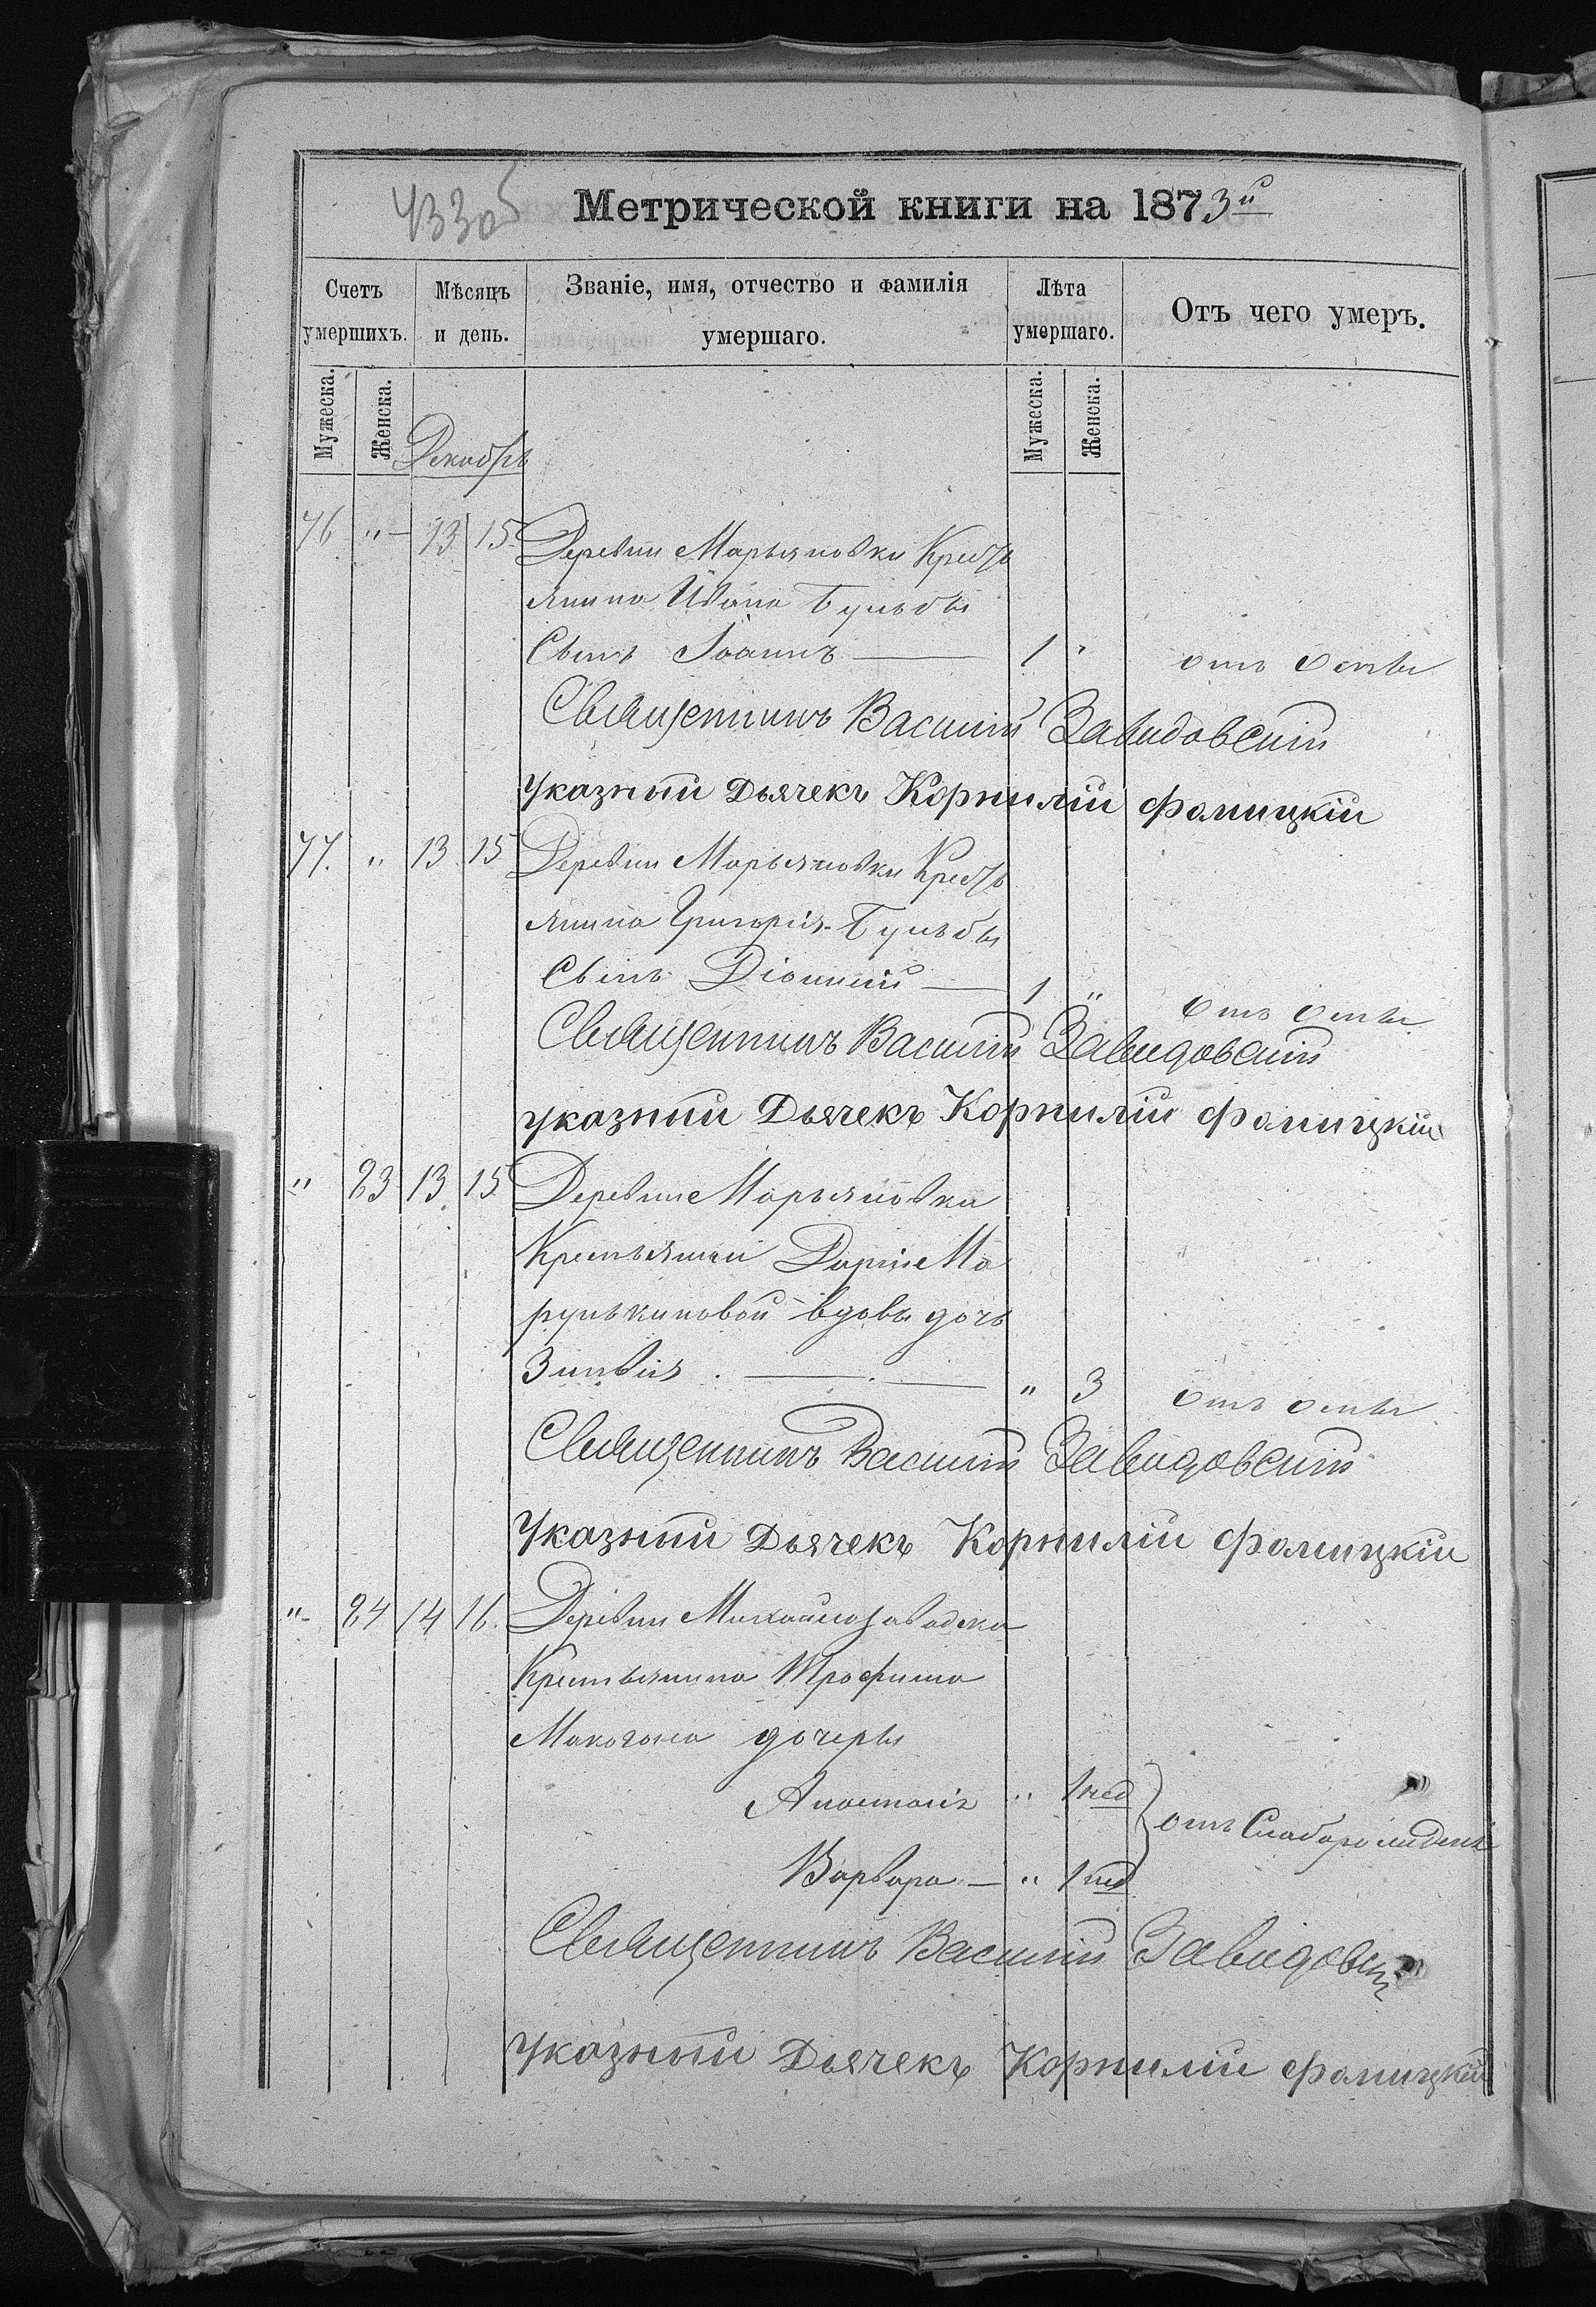 433об
Метрической книги на 1873й
Счетъ умершихъ. Мѣсяцъ и день. Званіе, имя, отчество и фамилія умершаго. Лѣта умершаго. Отъ чего умеръ.
Мужеска. Женска. Декабрь Мужеска. Женска.
76 " 13 15 Деревни Марьяновки Кресть
янина Ивана Бульбы
Сынъ Іоаннъ — 1 " отъ Оспы
Священникъ Василій Завидовскій
Указный Дьячекъ Корнилій Фомицкій
77. " 13 15 Деревни Марьяновки Кресть
янина Григорія Бульбы
Сынъ Діонисій — 1 " Отъ Оспы
Священникъ Василій Завидовскій
указный Дьячекъ Корнилій Фомицкій
" 23 13 15 Деревни Марьяновки
Крестьянки Даріи Ма
рунькиновой вдовы дочь
Зиновія . — . — " 3 Отъ оспы
Священникъ Василій Завидовскій
Указный Дьячекъ Корнилій Фомицкій
" 24 14 16. Деревни
Крестьянина Трофима
Макогона дочеры
" 1 нед
отъ
Варвара — " 1 нед
Священникъ Василій Завидовскій
Указный Дьячекъ Корнилій Фомицкій